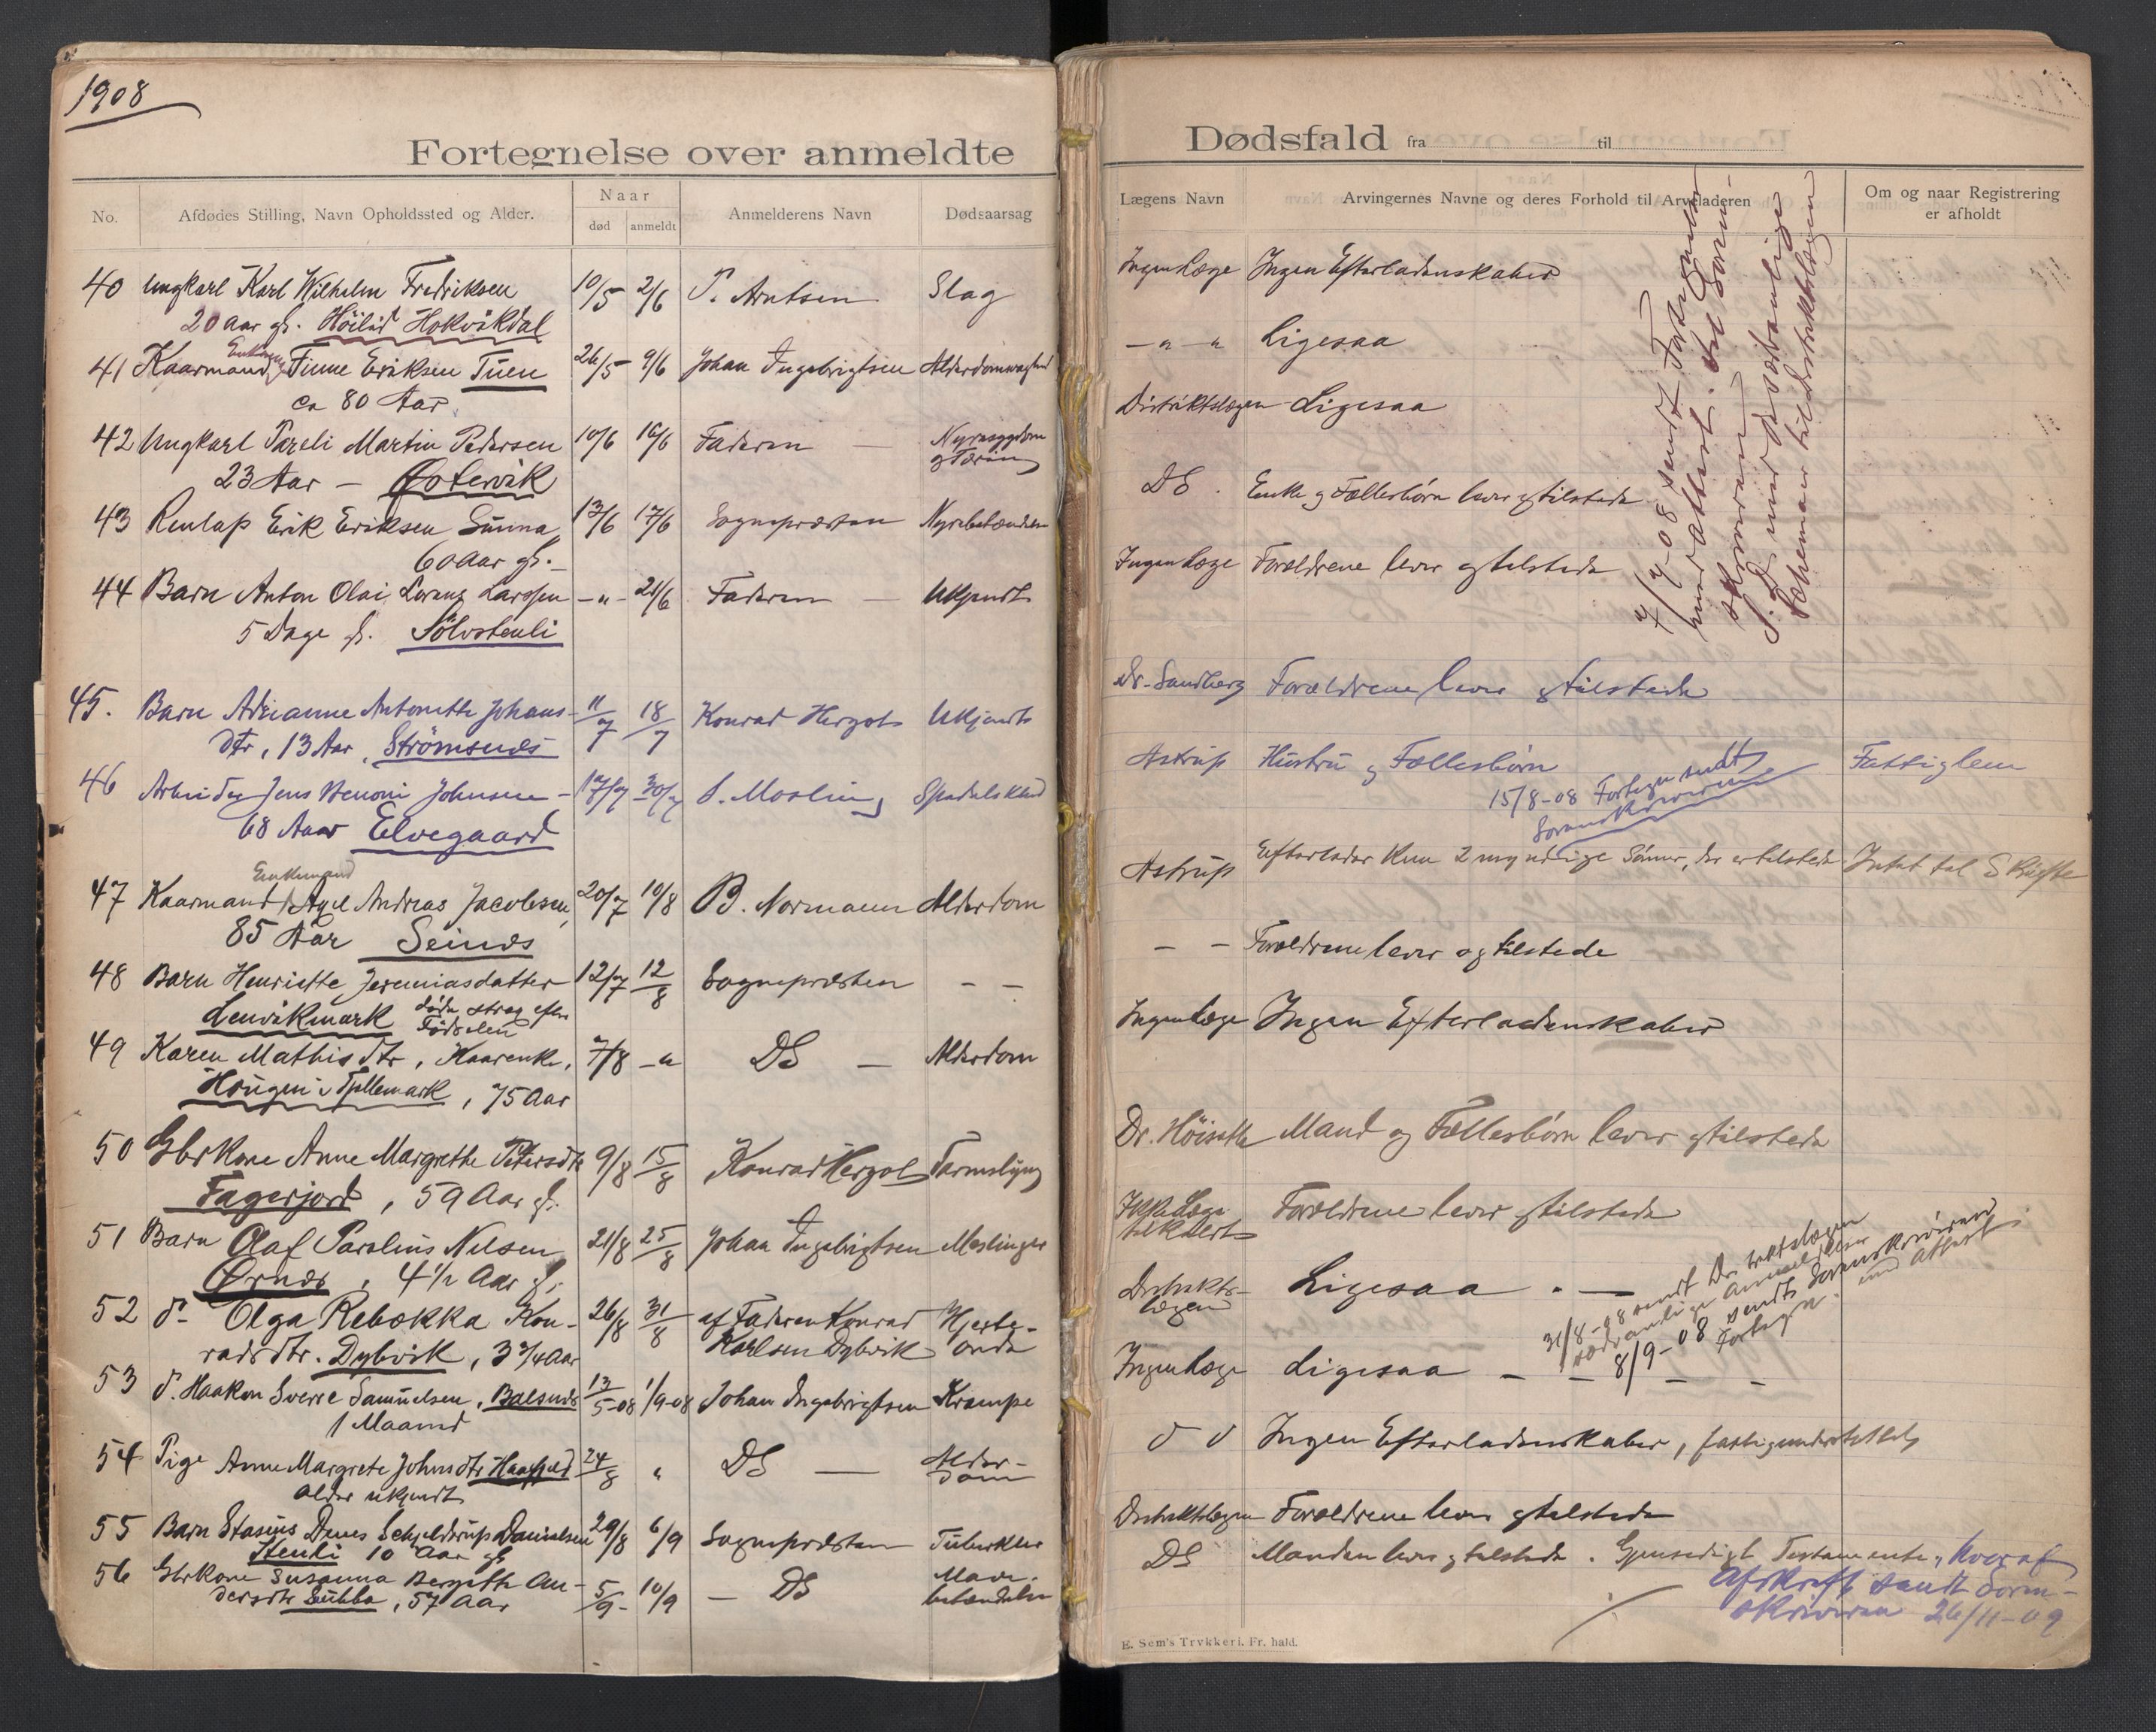 1908
Fortegnelse over anmeldte
No.
Afdødes Stilling, Navn Opholdssted og Alder.
Naar
død
anmeldt
Anmelderens Navn
Dødsaarsag
40 Ungkarl Karl Wilhelm Fredriksen 10/5 2/6 P. Arntsen Slag
20 Aar gl. Höilid Hokvikdal
Enkem
41 Kaarmand Finne Eriksen Tuen 26/5 9/6 Johan Ingebrigtsen
ca 80 Aar
42 Ungkarl Pareli Martin Pedersen 10/6 16/6 Faderen — Nyresygdom
23 Aar — og Tæring
43 Renlap Erik Eriksen Sunna 13/6 17/6 Sognepresten
60 Aar gl. —
44 Barn Anton Olai Lorenz Larssen -"- 21/6 Faderen — Ukjendt
5 Dage gl. Sölvstenli
45. Barn Adrianne Antonette Johans- 11/7 18/7 Konrad Hergot Ukjendt
dtr, 13 Aar, Strömsnes
46 Arbeider Jens Benoni Johnsen — 17/7 30/7 S. Mosling
68 Aar Elvegaard
Enkemand
47 Kaarmand Axel Andreas Jacobsen, 20/7 10/8 B. Normann Alderdom
85 Aar Seines
48 Barn Henriette Jeremiasdatter 12/7 12/8 Sognepresten — —
Lenvikmark døde strax efter
Födselen
49 Karen Mathisdtr, Kaarenke, 7/8 -" DS — Alderdom
Haugen i Tjellemark, 75 Aar
50 Gbrkone Anne Margrethe Petersdtr 9/8 15/8 Konrad Hergot Tarmslyng
Fagerjord, 59 Aar gl.
51 Barn Olaf Parelius Nilsen 21/8 25/8 Johan Ingebrigtsen Meslinger
Ørnes, 4 1/2 Aar gl.
52 d- Olga Rebækka Kon- 26/8 31/8 af Faderen Konrad Hjerte-
radsdtr. Dybvik, 3 3/4 Aar Karlsen Dybvik onde
53 d. Haakon Sverre Samuelsen, Balsnes 13/5-08 1/9-08 Johan Ingebrigtsen Krampe
1 Maaned
54 Pige Anne Margrete Johnsdtr Haafjeld 24/8 " DS — Alder-
Alder ukjendt dom
55 Barn Stasius Denes Schjelderup Danielsen 29/8 6/9 Sognepresten Tuberkler
Stenli 10 Aar gl
56 Gbrkone Susanna Bergitte An- 5/9- 10/9 — DS Mave-
dersdtr Subba, 57 Aar betændelse
Dødsfald fra til
Lægens Navn
Arvingernes Navne og deres Forhold til Arveladeren
Om og naar Registrering
er afholdt
Ingen Læge Ingen Efterladenskaber
— " — " Ligesaa
Distriktslægen Ligesaa
DS. Enke og Fællesbörn lever og tilstede
Ingen Læge Forældrene lever og tilstede
Dr. Sandberg Forældrene lever og tilstede
Astrup Hustru og Fællesbörn Fattiglem
15/8-08 Fortegn sendt
Sorenskriveren
Astrup Efterlader kun 2 myndige Sönner, der er tilstede Intet til Skifte
— — Forældrene lever og tilstede
Ingen Læge Ingen Efterladenskaber
Dr. Höisæth Mand og Fællesbörn lever og tilstede
Ikke Læge Forældrene lever og tilstede
tilkaldt
Distrikts- Ligesaa . —
lægen
31/8-08 sendt Distriktslægen
sedvanlige Anmeldelser
8/9-08 sendt Sorenskriveren
Fortegn. med Attest
Ingen Læge Ligesaa — — — —
d d Ingen Efterladenskaber, fattigunderstöttet
Distriktslægen Forældrene lever og tilstede
DS Manden lever og tilstede. Gjensidigt Testamente, hvoraf
Afskrift sendt Soren-
skriveren 26/11-09
7/7-08 sendt Fortegnelse
med Attest til Soren-
skriveren
S.D. med sedvanlige
Schemaer til Distriktslægen
E. Sem's Trykkeri. Fr. hald.